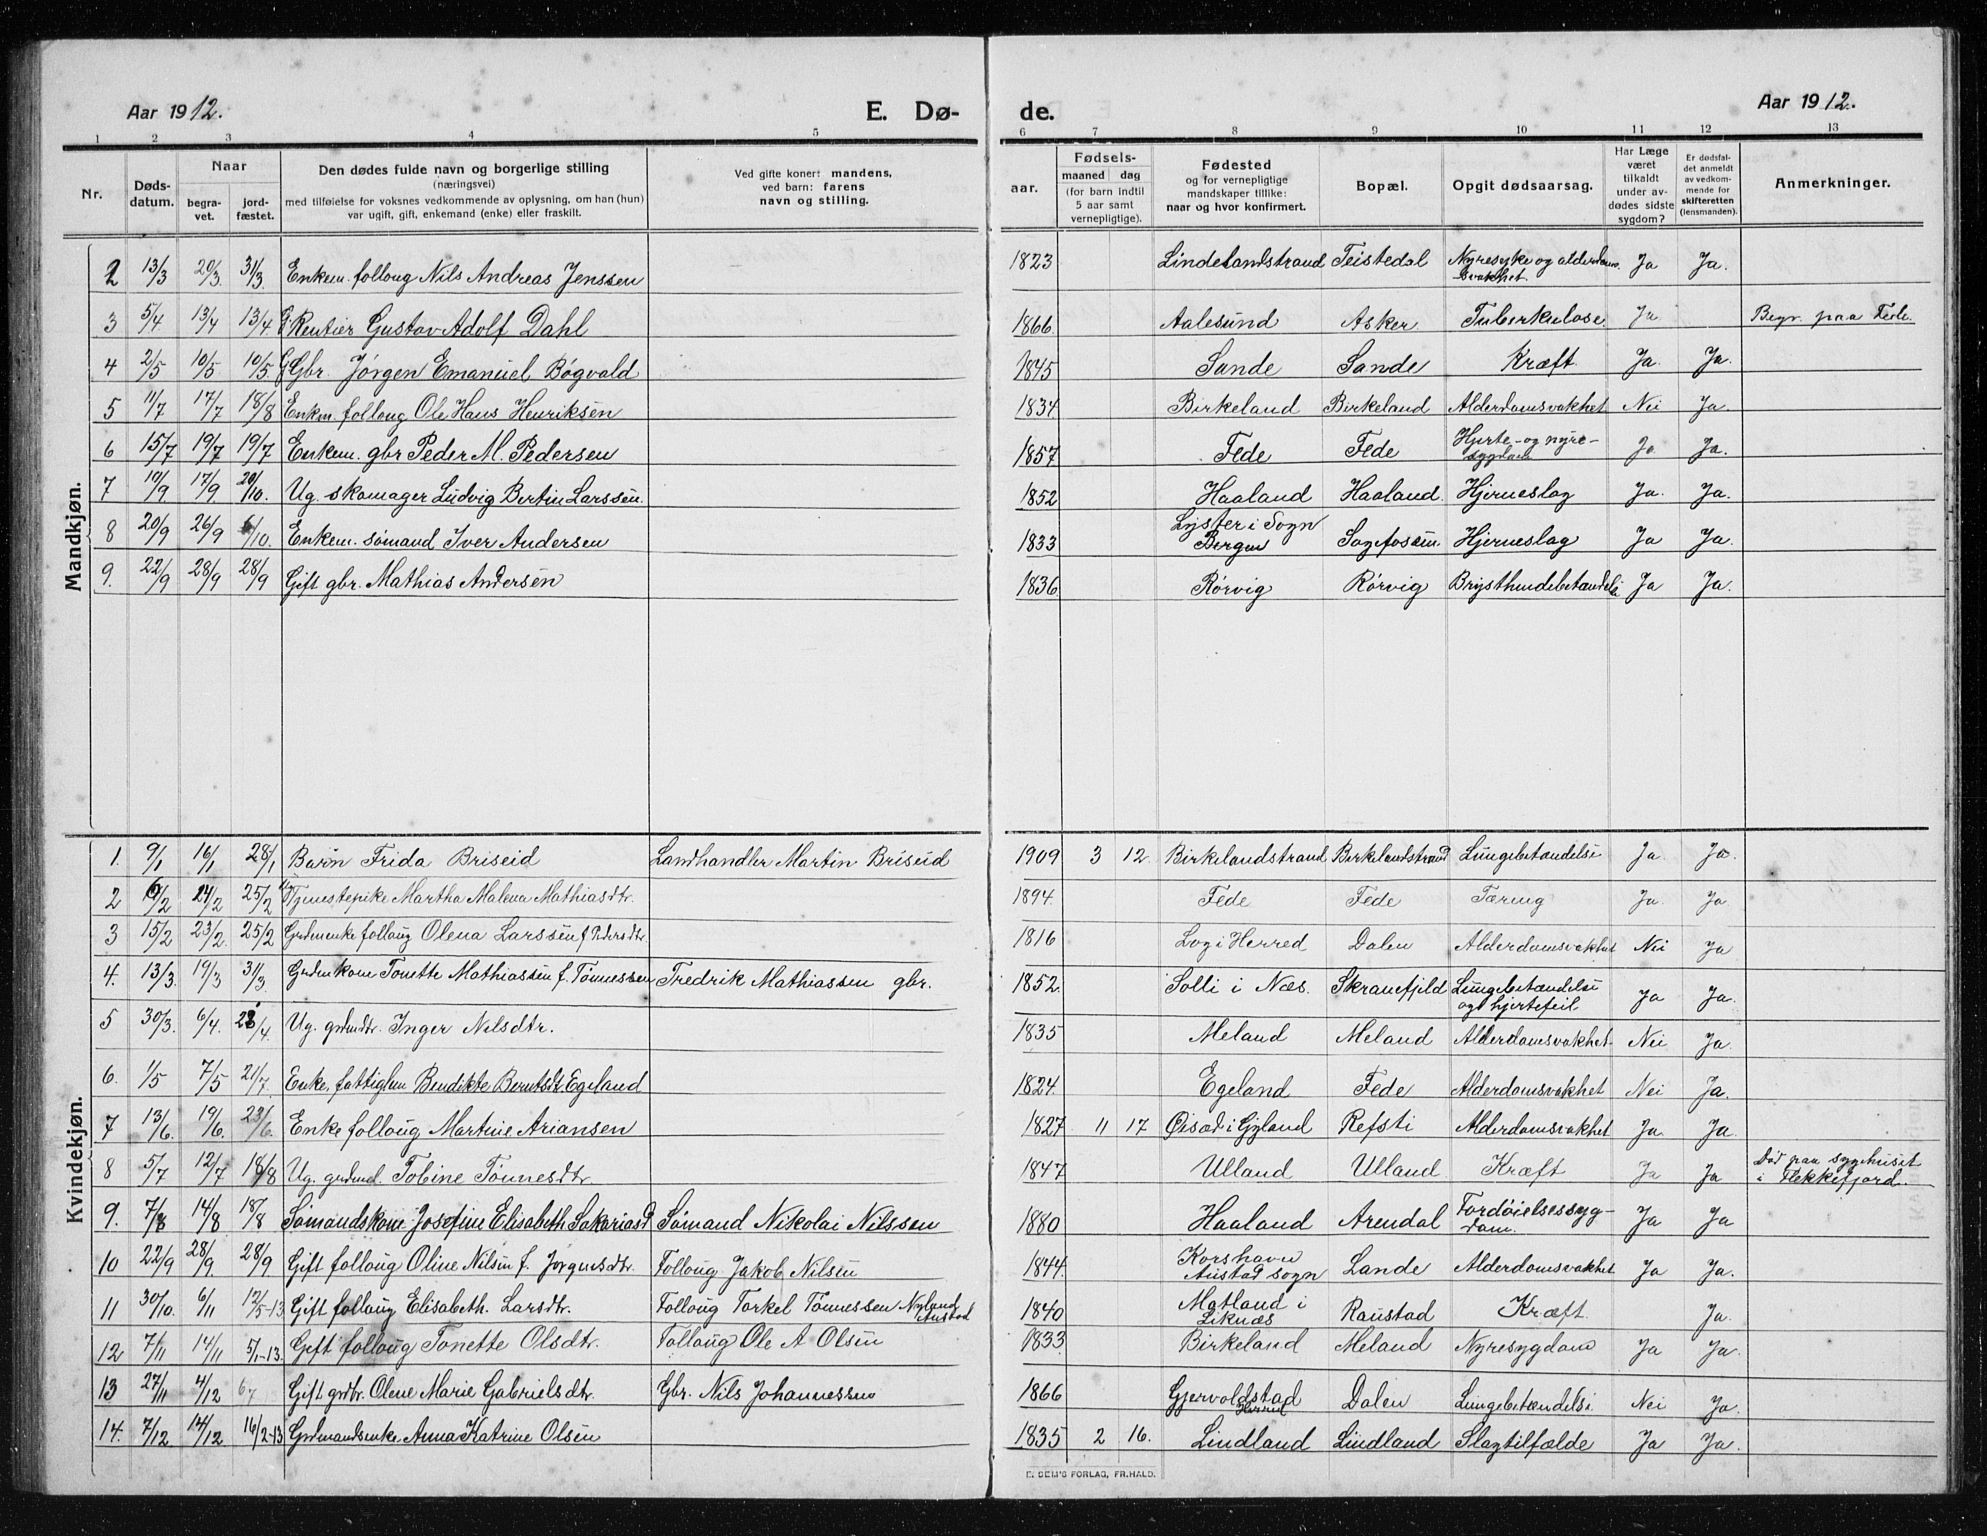 Aar 1912. E. Dø- de. Aar 1912.
1 2 3 4 5 6 7 8 9 10 11 12 13
Nr. Døds-datum. Naar begra-vet. jord-fæstet. Den dødes fulde navn og borgerlige stilling (næringsvei) med tilføielse for voksnes vedkommende av oplysning, om han (hun) var ugift, gift, enkemand (enke) eller fraskilt. Ved gifte koner: mandens, ved barn: farens navn og stilling. aar. Fødsels- maaned dag (for barn indtil 5 aar samt vernepligtige). Fødested og for vernepligtige mandskaper tillike: naar og hvor konfirmert. Bopæl. Opgit dødsaarsag. Har Læge været tilkaldt under av-dødes sidste sygdom? Er dødsfal-det anmeldt av vedkom-mende for skifteretten (lensmanden). Anmerkninger.
Mandkjøn.
2 13/3 20/3 31/3 Enkem. folloug Nils Andreas Jenssen 1823 Lindelandstrand Feistedal Nyresyke og alderdomssvakhet Ja Ja.
3 5/4 13/4 13/4 G. Rentier Gustav Adolf Dahl 1866 Aalesund Asker Tuberkulose Ja Begr. paa Fede.
4 2/5 10/5 10/5 G. Gbr. Jørgen Emanuel Bøgvald 1845 Sande Sande Kræft Ja. Ja.
5 11/7 17/7 18/8 Enkem. folloug Ole Hans Henriksen 1834 Birkeland Birkeland Alderdomsvakhet Nei Ja.
6 15/7 19/7 19/7 Enkem. gbr Peder M. Pedersen 1857 Fede Fede Hjerte- og nyre-sygdom Ja Ja.
7 10/9 17/9 20/10. Ug. skomager Ludvig Bertin Larssen. 1852 Haaland Haaland. Hjerneslag Ja. Ja.
8 20/9 26/9 6/10. Enkem. sømand Iver Andersen 1833 Lyster i Sogn Bergen Hjerneslag Ja Ja.
9. 22/9 28/9 28/9 Gift gbr. Mathias Andersen 1836 Rørvig Rørvig Brysthindebetændelse Ja Ja.
Kvindekjøn.
1. 9/1 16/1 28/1 Barn Frida Briseid Landhandler Martin Briseid 1909 3 12. Birkelandstrand Birkelandstrand Lungebetændelse Ja. Ja.
2 6/2 24/2 25/2 Tjenestepike Martha Malena Mathiasdtr. 1894. Fede Fede Tæring Ja. Ja
3 15/2 23/2. 25/2 Grdmenke folloug Olena Larssen f. Pedersdtr. 1816 Log i Herred Dalen Alderdomsvakhet Nei Ja
4. 13/3. 19/3 31/3. Grdmkone Tonette Mathiassen f. Tønnessen Fredrik Mathiassen gbr. 1852. Solli i Næs. Skranefjeld Lungebetændelse og hjertefeil Ja Ja.
5 30/3. 6/4. 28/4. Ug. grdmdtr. Inger Nilsdtr. 1835 Meland Meland Alderdomsvakhet. Nei Ja.
6. 1/5 7/5 21/7. Enke, fattiglem Bendikte Berntsdtr. Egeland 1824. Egeland Fede Alderdomsvakhet Nei Ja.
7 13/6. 19/6. 23/6. Enke folloug Martine Ariansen 1827 11 17 Øisad i Gyland Refsti Alderdomsvakhet Ja. Ja.
8 5/7 12/7 18/8 Ug. grdmd. Tobine Tønnesdtr. 1847 Ulland Ulland Kræft Ja Ja Død paa sygehuset i Flekkefjord.
9. 7/8 14/8 18/8 Sømandskone Josefine Elisabeth Sakariasd Sømand Nikolai Nilssen 1880 Haaland Arendal Fordøielsessyg-dom. Ja Ja
10 22/9 28/9. 28/9 Gift folloug Oline Nilsen f. Jørgensdtr. Folloug. Jakob Nilsen 1844. Korshavn Austad sogn Lande Alderdomsvakhet Ja Ja.
11 30/10. 6/11 12/5-13 Gift folloug Elisabeth. Larsdtr. Folloug Torkel Tønnessen Nyland Austad 1840 Matland i Liknæs Raustad Kræft. Ja.
12 7/11 14/11 5/1-13. Gift folloug Tonette Olsdtr. Folloug Ole A Olsen 1833 Birkeland Meland Nyresygdom Ja Ja.
13 27/11 4/12 Gift grdbr. Olene Marie Gabrielsdtr. Gbr. Nils Johannessen 1866 Gjervoldstad Herred Dalen Lungebetændelse. Nei Ja.
14. 7/12. 14/12 16/2-13 Grdmandsenke. Anna Katrine Olsen 1835 2 16. Lindland Lindland Slagtilfælde Ja Ja.
E. SEM'S FORLAG, FR.HALD.